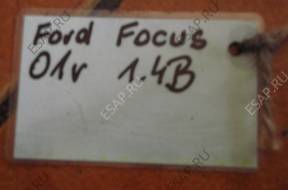 Ford Focus
01r 1.4B
ESAP.RU
ESAP.RU
ESAP.RU
ESAP.RU